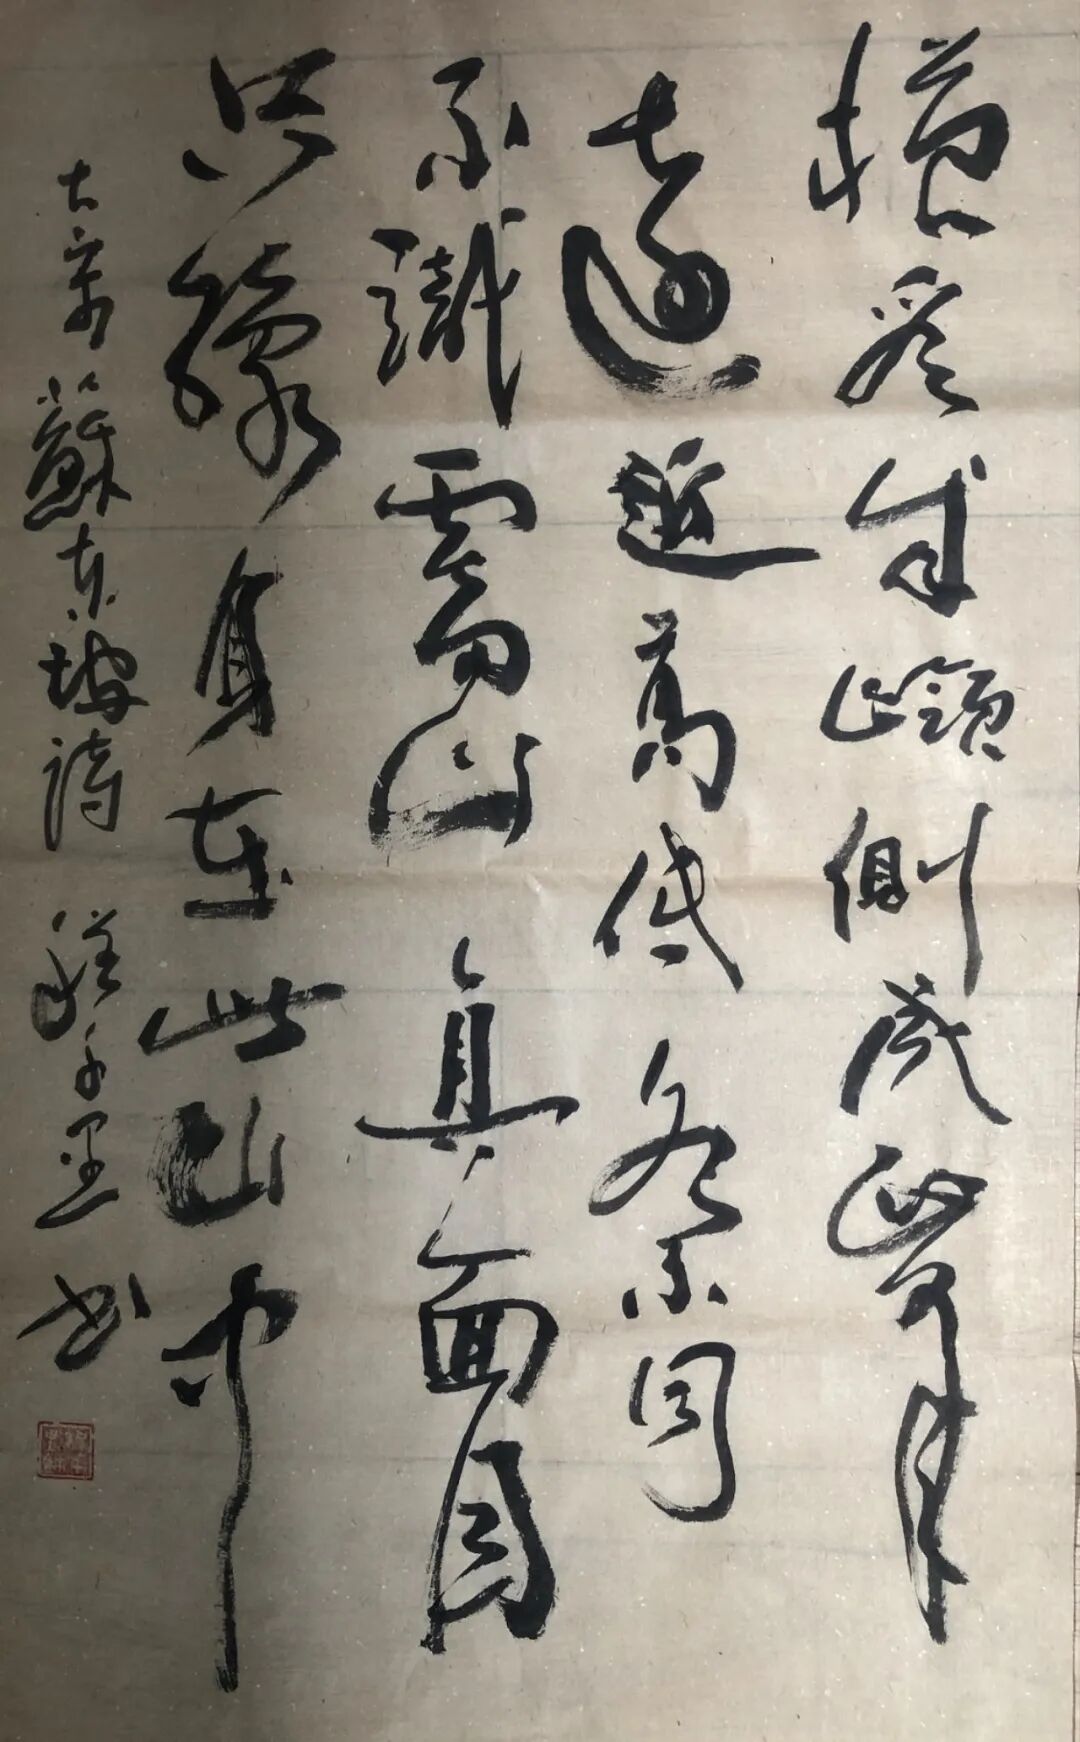 橫看成嶺側成峰
遠近高低各不同
不識廬山真面目
只緣身在此山中
大宋蘇東坡詩 書